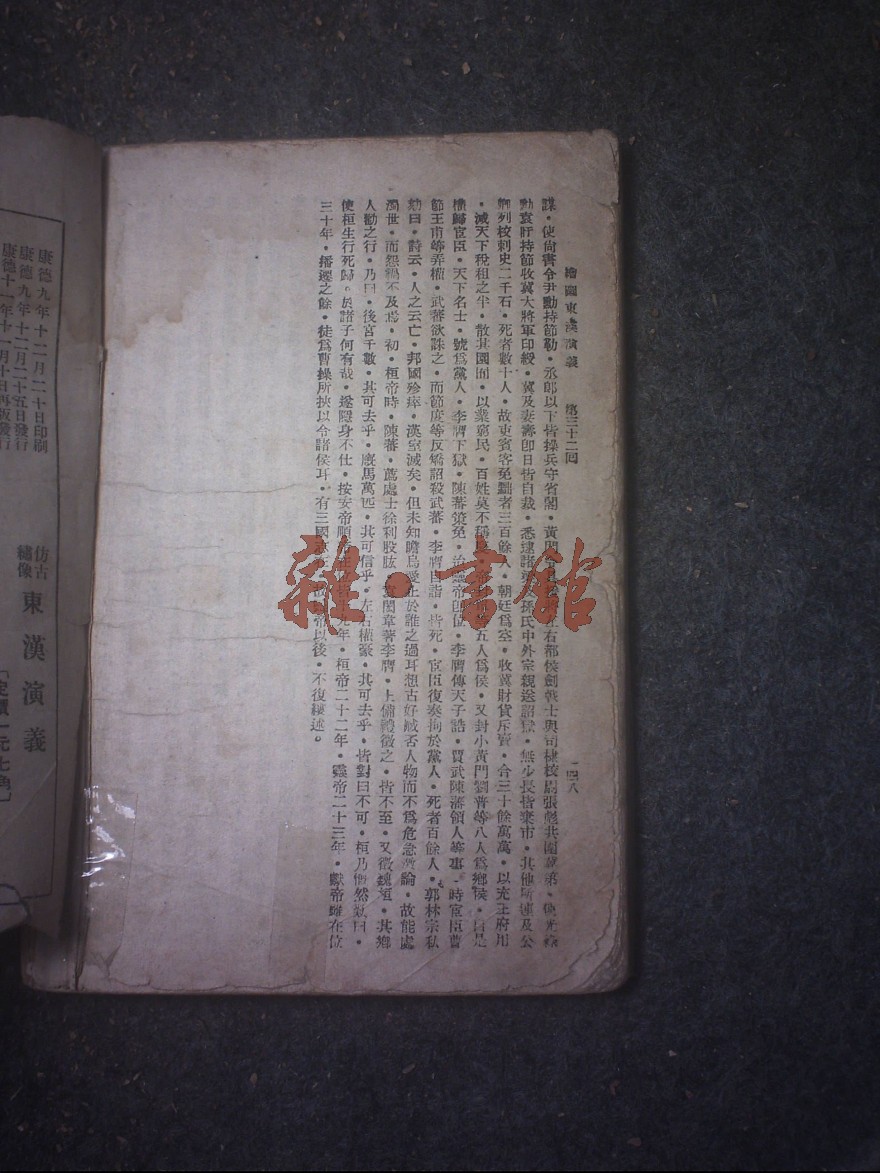 繪圖東漢演義 第三十二回 一四八
謀・使尙書令尹勳持節勒・丞郎以下皆操兵守省閣・黃門令具 右都侯劍戟士與司棣校尉張彪共圍冀第・使光祿
勳袁盱持節收冀大將軍印綬・冀及妻壽卽日皆自裁・悉逮諸梁及孫氏中外宗親送詔獄・無少長皆棄市・其他所連及公
卿列校刺史二千石・死者數十人・故吏賓客免黜者三百餘人・朝廷爲空・收冀財貨斥賣・合三十餘萬萬・以充王府用
・減天下稅租之半・散其園囿・以業窮民・百姓莫不稱 五人爲侯・又封小黃門劉普等八人爲鄉侯・自是
權歸宦臣・天下名士・號爲黨人・李膺下獄・陳蕃策免・ 靈帝卽位・李膺傳天子誥・賈武陳蕃領人等事・時宦臣曹
節王甫等弄權・武蕃欲誅之・而節度等反矯詔殺武蕃・李膺自詣・皆死・宦臣復奏拘於黨人・死者百餘人・郭林宗私
慟曰・詩云・人之云亡・邦國殄瘁・漢室滅矣・但未知瞻烏爰止於誰之過耳想古好臧否人物而不爲危急 論・故能處
濁世・而怨禍不及焉・初・桓帝時・陳蕃・薦處士徐利股肱・ 閎韋著李膺・上備禮徵之・皆不至・又徵魏桓・其鄉
人勸之行・乃曰・後宮千數・其可去乎・廐馬萬匹・其可信乎・左右權豪・其可去乎・皆對曰不可・桓乃慨然歎曰・
使桓生行死歸・於諸子何有哉・遂隱身不仕・按安帝順帝 九年・桓帝二十二年・靈帝二十三年・獻帝雖在位
三十年・播遷之餘・徒爲曹操所挾以令諸侯耳・有三國 帝以後・不復纘述。
仿古
繡像
東漢演義
[定價一元七角]
康德九年十二月二十日印刷
康德九年十二月二十五日發行
康德十一年十一月十日再版發行
雜・書館